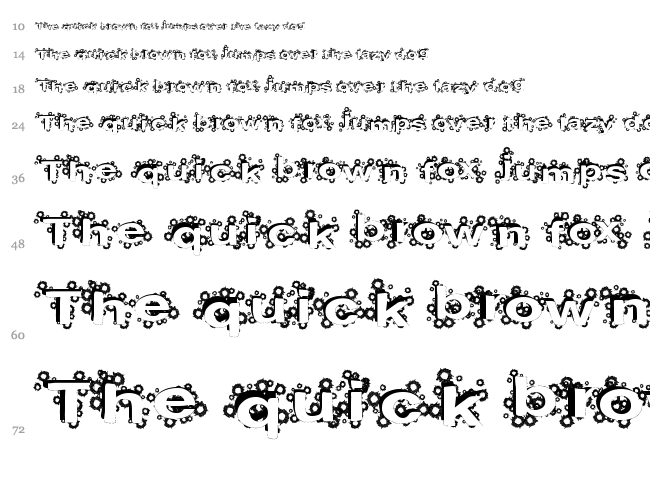 10 The quick brown fox jumps over the lazy dog
14 The quick brown fox jumps over the lazy dog
18 The quick brown fox jumps over the lazy dog
24 The quick brown fox jumps over the lazy do
36 The quick brown fox jumps o
48 The quick brown fox
60 The quick brown
72 The quick bro